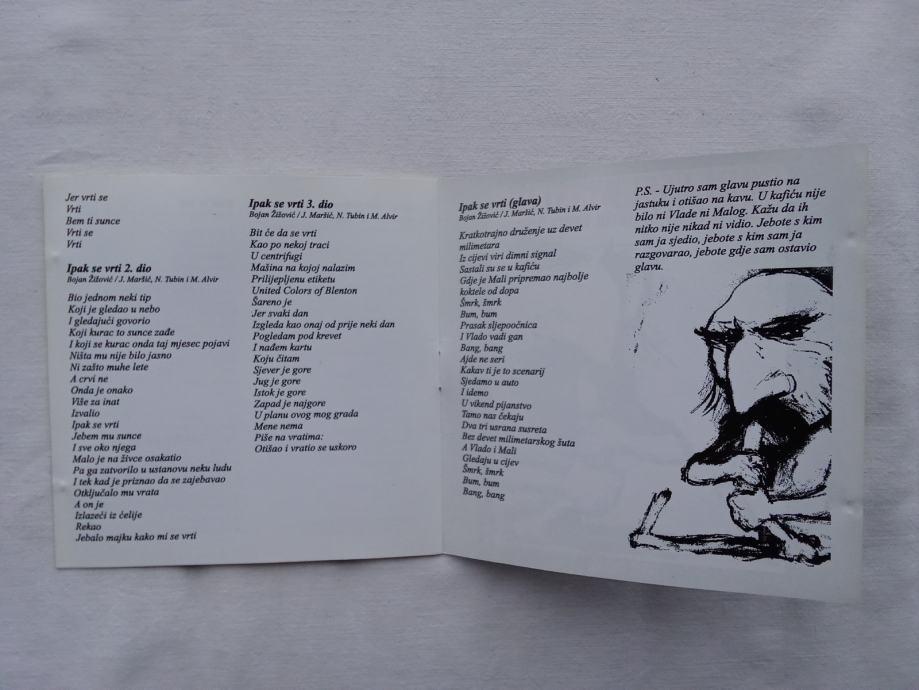 Jer vrti se
Vrti
Bem ti sunce
Vrti se
Vrti
Ipak se vrti 2. dio
Bojan Žižović / J. Maršić, N. Tubin i M. Alvir
Bio jednom neki tip
Koji je gledao u nebo
I gledajući govorio
Koji kurac to sunce zađe
I koji se kurac onda taj mjesec pojavi
Ništa mu nije bilo jasno
Ni zašto muhe lete
A crvi ne
Onda je onako
Više za inat
Izvalio
Ipak se vrti
Jebem mu sunce
I sve oko njega
Malo je na živce osakatio
Pa ga zatvorilo u ustanovu neku ludu
I tek kad je priznao da se zajebavao
Otključalo mu vrata
A on je
Izlazeći iz ćelije
Rekao
Jebalo majku kako mi se vrti
Ipak se vrti 3. dio
Bojan Žižović / J. Maršić, N. Tubin i M. Alvir
Bit će da se vrti
Kao po nekoj traci
U centrifugi
Mašina na kojoj nalazim
Prilijepljenu etiketu
United Colors of Blenton
Šareno je
Jer svaki dan
Izgleda kao onaj od prije neki dan
Pogledam pod krevet
I nađem kartu
Koju čitam
Sjever je gore
Jug je gore
Istok je gore
Zapad je najgore
U planu ovog mog grada
Mene nema
Piše na vratima:
Otišao i vratio se uskoro
Ipak se vrti (glava)
Bojan Žižović / J. Maršić, N. Tubin i M. Alvir
Kratkotrajno druženje uz devet
milimetara
Iz cijevi viri dimni signal
Sastali su se u kafiću
Gdje je Mali pripremao najbolje
koktele od dopa
Šmrk, šmrk
Bum, bum
Prasak sljepoočnica
I Vlado vadi gan
Bang, bang
Ajde ne seri
Kakav ti je to scenarij
Sjedamo u auto
I idemo
U vikend pijanstvo
Tamo nas čekaju
Dva tri usrana susreta
Bez devet milimetarskog šuta
A Vlado i Mali
Gledaju u cijev
Šmrk, šmrk
Bum, bum
Bang, bang
P.S. - Ujutro sam glavu pustio na
jastuku i otišao na kavu. U kafiću nije
bilo ni Vlade ni Malog. Kažu da ih
nitko nije nikad ni vidio. Jebote s kim
sam ja sjedio, jebote s kim sam ja
razgovarao, jebote gdje sam ostavio
glavu.